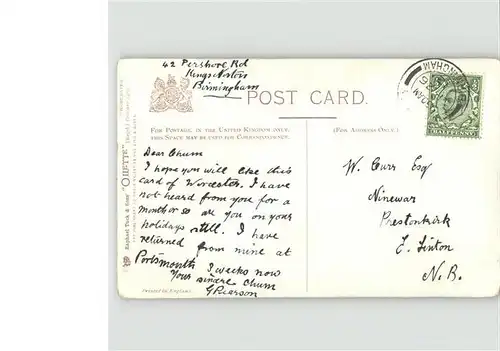 42 Pershore Rd
Kings Norton
Birmingham
POST CARD.
FOR POSTAGE IN THE UNITED KINGDOM ONLY,
THIS SPACE MAY BE USED FOR CORRESPONDENCE.
(FOR ADDRESS ONLY.)
Dear Chum
I hope you will like this
card of Worcester. I have
not heard from you for a
month or so are you on your
holidays still. I have
returned from mine at
Portsmouth 3 weeks now
Your sincere chum
G Pearson
W. Curr Esq
Ninewar
Prestonkirk
E. Linton
N.B.
Raphael Tuck & Sons' "OILETTE"
HALFPENNY